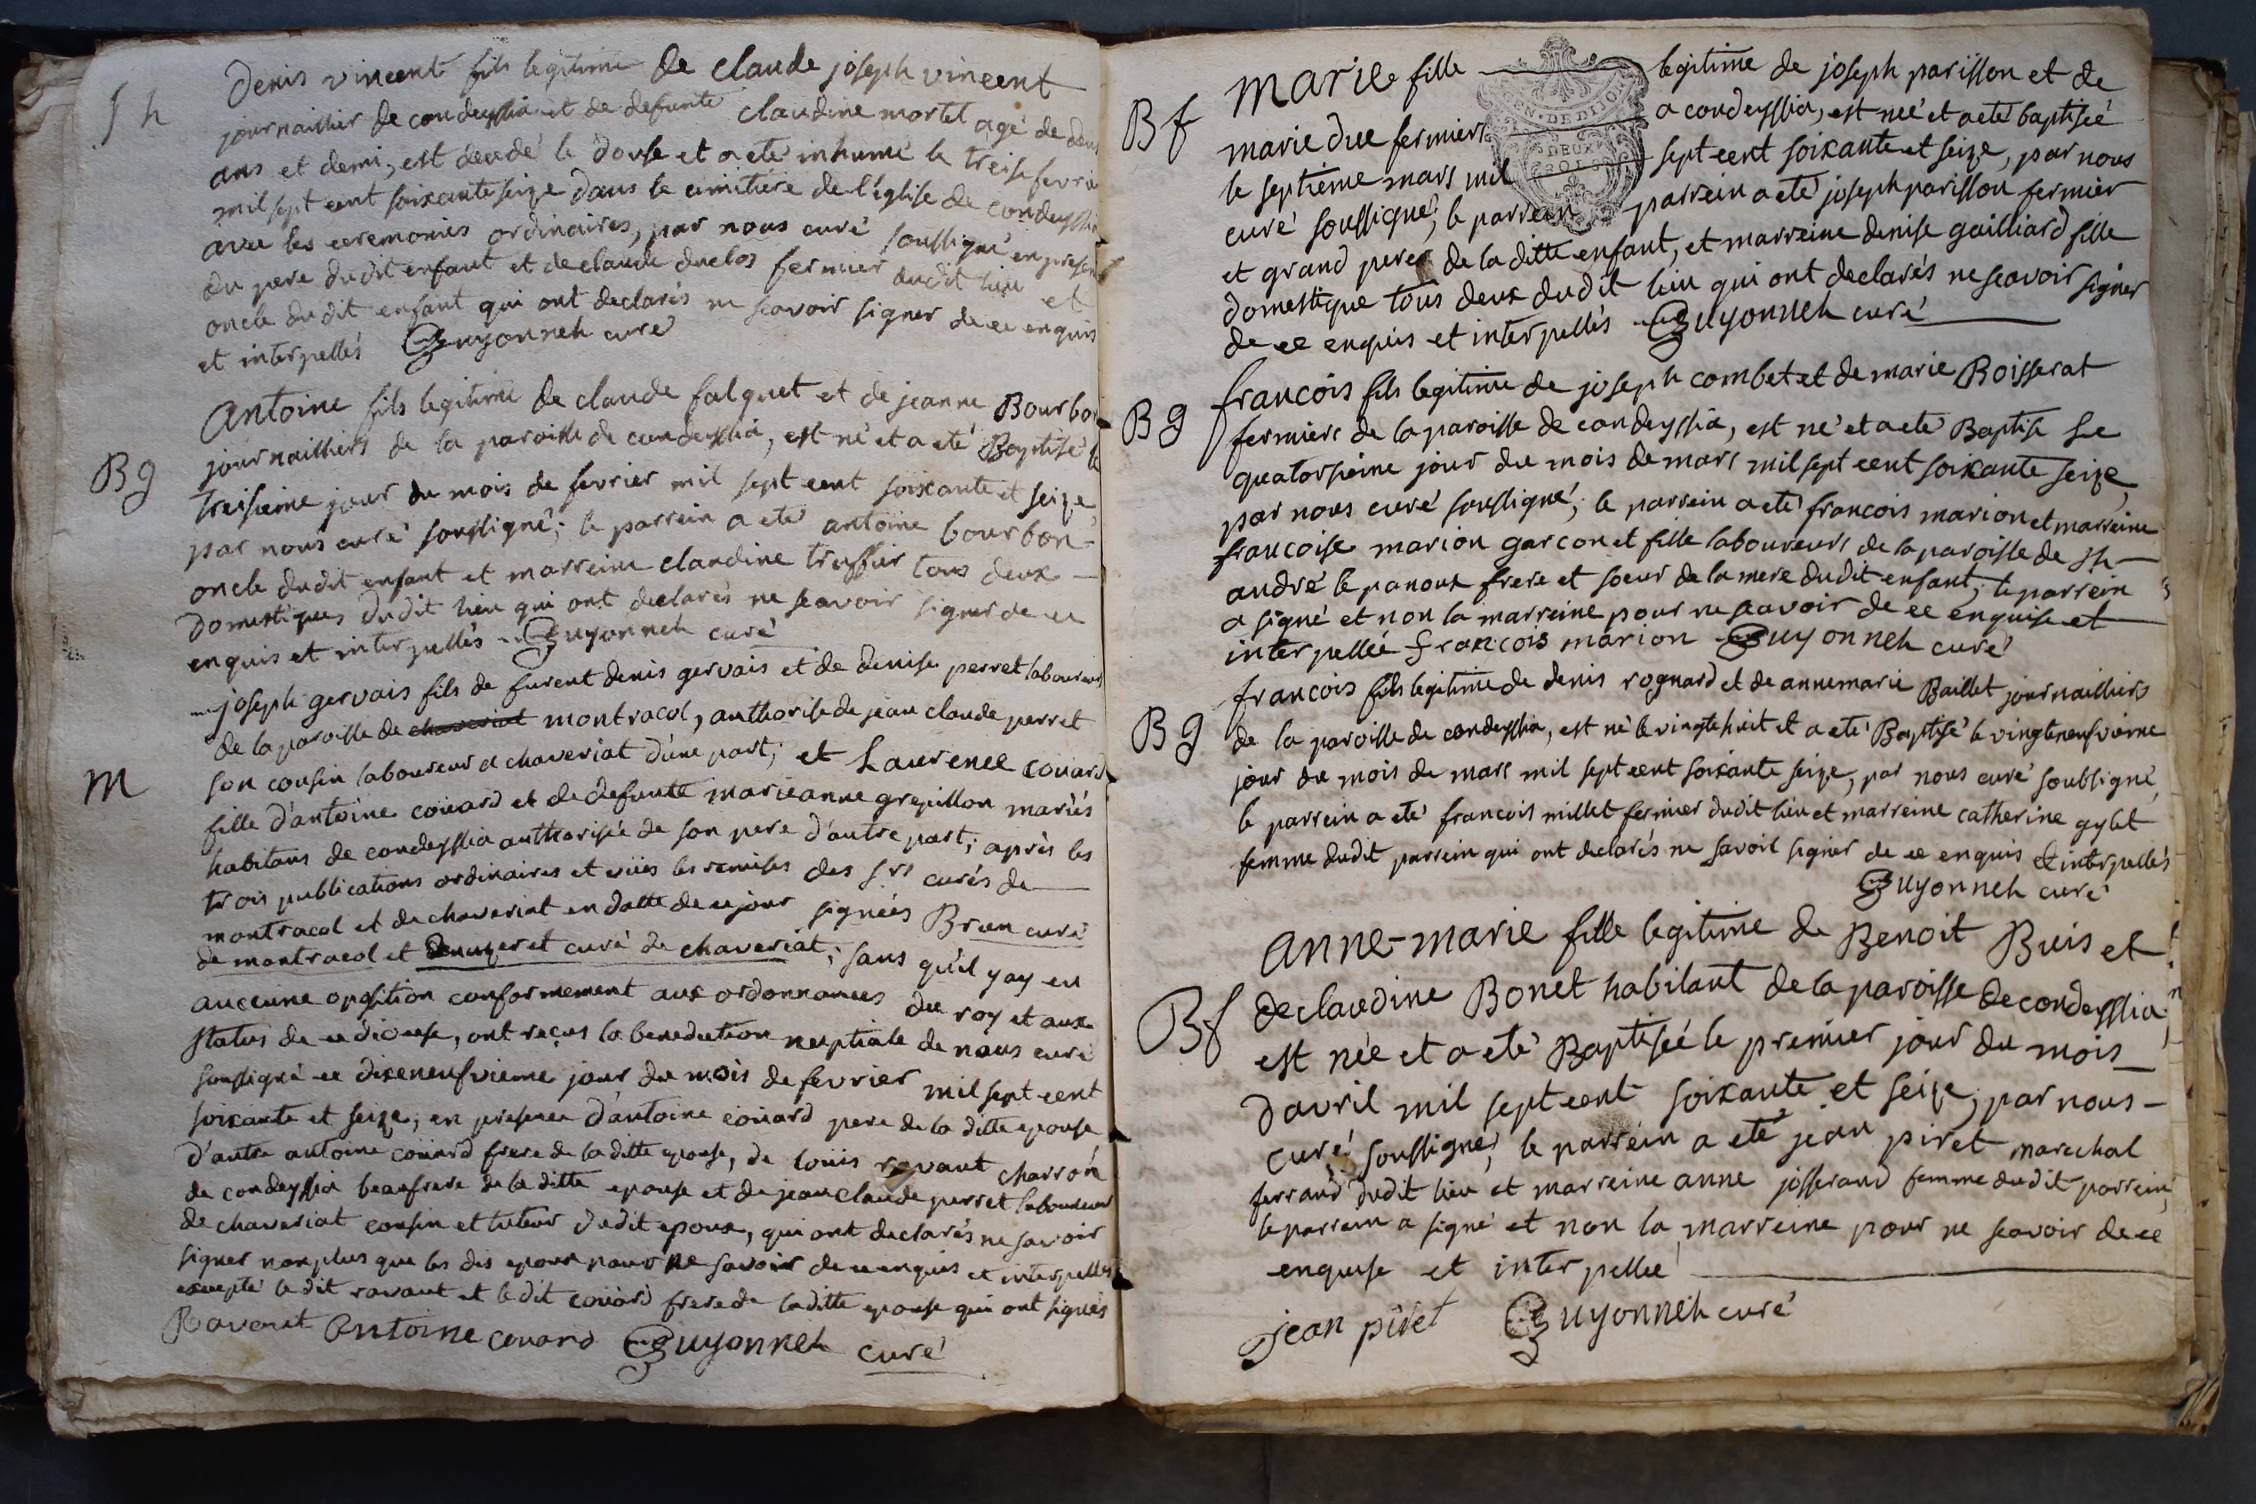 Denis vincent fils legitime de claude joseph vincent
S h
journaillier de condeyssia et de defunte claudine mortel agé de deux
ans et demi, est decedé le douse et a eté inhumé le treise fevrier
mil sept cent soixante seize dans le cimitiére de l'église de condeyssia
avec les ceremonies ordinaires, par nous curé soussigné en presence
du pere dudit enfant et de claude duclos fermier dudit lieu et
oncle dudit enfant qui ont declarés ne scavoir signer de ce enquis
et interpellés Guyonneh curé
Antoine fils legitime de claude falquet et de jeanne Bourbon
B g
journailliers de la paroisse de condeyssia, est né et a eté Baptisé le
treisieme jour du mois de fevrier mil sept cent soixante et seize,
par nous curé soussigné; le parrein a eté antoine bourbon
oncle dudit enfant et marreine claudine truffier tous deux
domestiques dudit lieu qui ont declarés ne scavoir signer de ce
enquis et interpellés Guyonneh curé
joseph gervais fils de furent denis gervais et de denise perret laboureurs
de la paroisse de chaveriat montracol, authorise de jean claude perret
M
son cousin laboureur a chaveriat d'une part; et Laurence coüard
fille d'antoine coüard et de defunte marieanne grepillon mariés
habitans de condeyssia authorisée de son pere d'autre part; après les
trois publications ordinaires et vües les remises des srs curés de
montracol et de chaveriat en datte de ce jour signées Brun curé
de montracol et curé de chaveriat; sans qu'il y ay eu
auccune oposition conformement aux ordonnances du roy et aux
status de ce diocese, ont reçus la benediction neuptiale de nous curé
soussigné ce dixeneufvieme jour du mois de fevrier mil sept cent
soixante et seize, en presence d'antoine coüard pere de la ditte epouse
d'autre antoine coüard frere de la ditte epouse, de loüis ravaut charron
de condeyssia beaufrere de la ditte epouse et de jean claude perret laboureur
de chaveriat cousin et tuteur dudit epoux, qui ont declarés ne savoir
signer nonplus que les dis epoux pour ne savoir de ce enquis et interpellés
excepté le dit ravaut et le dit coüard frere de laditte epouse qui ont signés
Ravaut Antoine couard Guyonneh curé
Marie fille legitime de joseph parisson et de
B f
marie duc fermiers a condeyssia, est neé et a eté baptiseé
le septieme mars mil sept cent soixante et seize, par nous
curé soussigné; le parrein parrein a eté joseph parisson fermier
et grand pere de la ditte enfant, et marreine denise gailliard fille
domestique tous deux dudit lieu qui ont declarés ne scavoir signer
de ce enquis et interpellés Guyonneh curé
GEN. DE DIJON
DEUX
SOLS
francois fils legitime de joseph combet et de marie Boisserat
B g
fermiers de la paroisse de condeyssia, est né et a eté Baptise Le
quatorsieme jour du mois de mars mil sept cent soixante seize,
par nous curé soussigné; le parrein a eté francois marion et marreine
francoise marion garcon et fille laboureurs de la paroisse de St
andré le panoux frere et soeur de la mere dudit enfant; le parrein
a signé et non la marreine pour ne scavoir de ce enquise et
interpellée francois marion Guyonneh curé
francois fils legitime de denis rognard et de annemarie Baillet journailliers
B g
de la paroisse de condeyssia, est né le vingtehuit et a eté Baptisé le vingteneufvieme
jour du mois de mars mil sept cent soixante seize, par nous curé soubsigné,
le parrein a eté francois millet fermier dudit lieu et marreine catherine gylet
femme dudit parrein qui ont declarés ne savoir signer de ce enquis et interpellés
Guyonneh curé
Anne-marie fille legitime de Benoit Buis et
B f
de claudine Bonet habitant de la paroisse de condeyssia,
est née et a eté Baptiseé le premier jour du mois
d'avril mil sept cent soixante et seize, par nous
curé soussigné; le parrein a eté jean piret marechal
ferrand dudit lieu et marreine anne josserand femme dudit parrein,
le parrein a signé et non la marreine pour ne scavoir de ce
enquise et interpellee
jean piret Guyonneh curé